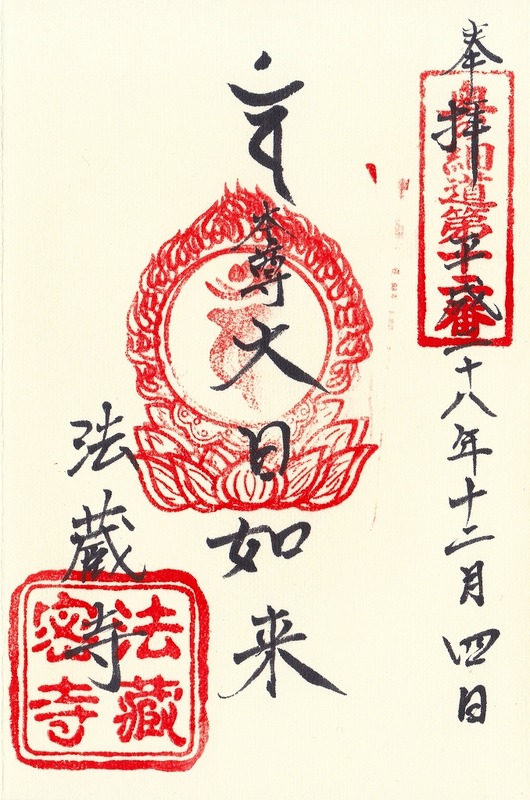 奉拝 平成二十八年十二月四日
細道第十二番
𑖀
本尊 大日如来
法蔵寺
法藏密寺